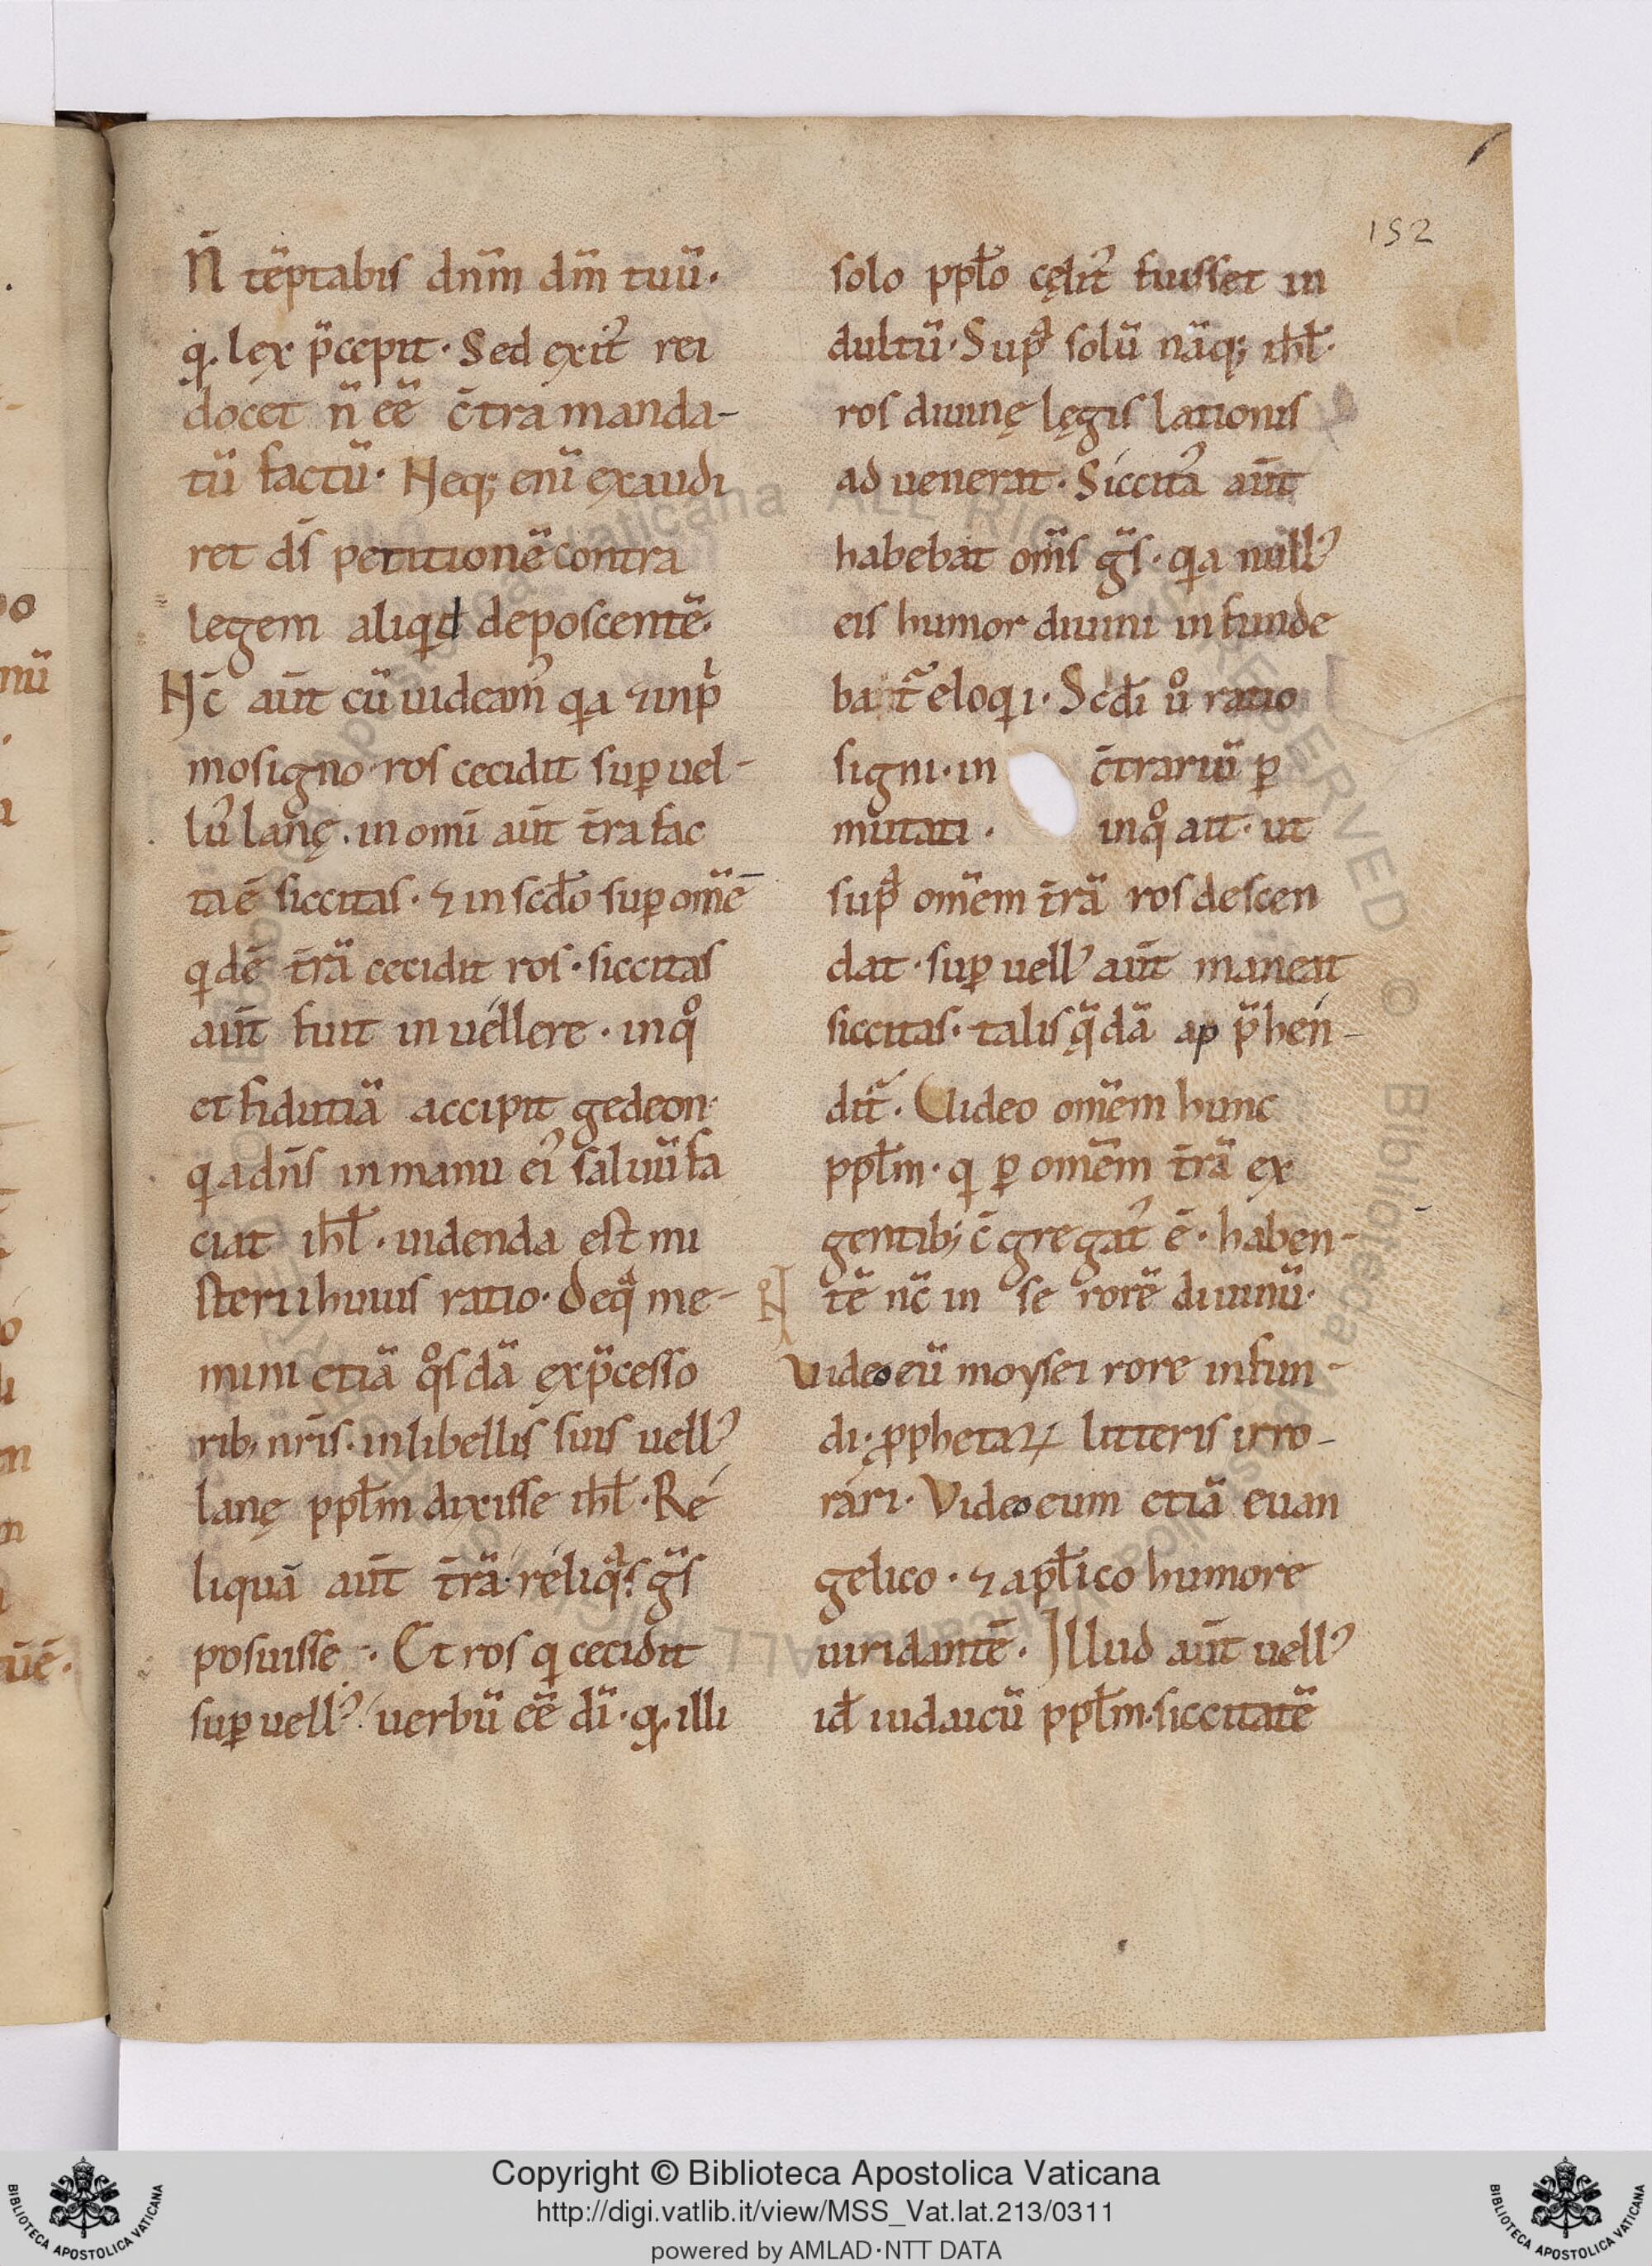 152
N̄ tēptabis dn̄m dm̄ tuū·
q. lex p̄cepit· Sed exit᾽ rei
docet n̄ eē c̄tra manda-
tū factū· Neq; enī exaudi
ret ds̄ petitionē contra
legem aliqid deposcentē·
Hc̄ aūt cū uideam᾽ qa ⁊ inp̄
mo signo ros cecidit suꝑ uel-
lu᾽ lanę· in omī aūt tr̄a fac
ta ē siccitas· ⁊ in scd̄o suꝑ om̄ē
qdē tr̄ā cecidit ros· siccitas
aūt fuit in uéllere· in qͦ
et fidutiā accipit gedeon·
qa dn̄s in manu ei᾽ saluū fa
ciat ihl̄· uidenda est mi
sterii huius ratio· Deqͣ me-
mini etiā qͦsdā ex p̄cesso
rib; nr̄is· in libellis suis uell᾽
lanę ppl̄m dixisse ihl̄· Ré
liquā aūt tr̄ā· réliqͣs gͣs
posuisse·· Et ros q cecidit
suꝑ uell᾽· uerbū eē dī· q. illi
solo ppl̄o cęlit᾽ fuisset in
dultū· Supͣ solū nāq; ihl̄·
ros diuinę lęgis lationis
ad uenerat· Síccitā aūt
habebat om̄s gͣs· qa null᾽
eis humor diuini infunde
bat᷑ eloqi· Scd̄i uͦ ratio
signi· in c̄trariū ꝑ
mutati· in qͦ ait· ut
supͣ om̄em tr̄ā ros descen
dat· suꝑ uell᾽ aūt maneat
siccitas· talis qͣdā ap p̄hén-
dit᷑· Uideo om̄em hunc
ppl̄m· q ꝑ om̄em tr̄ā ex
gentib; c̄gregat᾽ ē· haben-
tē nc̄ in se rorē diuinū·
Uideo eū moysei rore infun-
di· ꝓphetaꝝ litteris irro-
rári· Video eum etiā euan
gelico· ⁊ apl̄ico humore
uiridantē· Illud aūt uell᾽
id̄ iudaicū ppl̄m· siccitatē
Copyright © Biblioteca Apostolica Vaticana
http://digi.vatlib.it/view/MSS_Vat.lat.213/0311
powered by AMLAD·NTT DATA
BIBLIOTECA APOSTOLICA VATICANA
BIBLIOTECA APOSTOLICA VATICANA